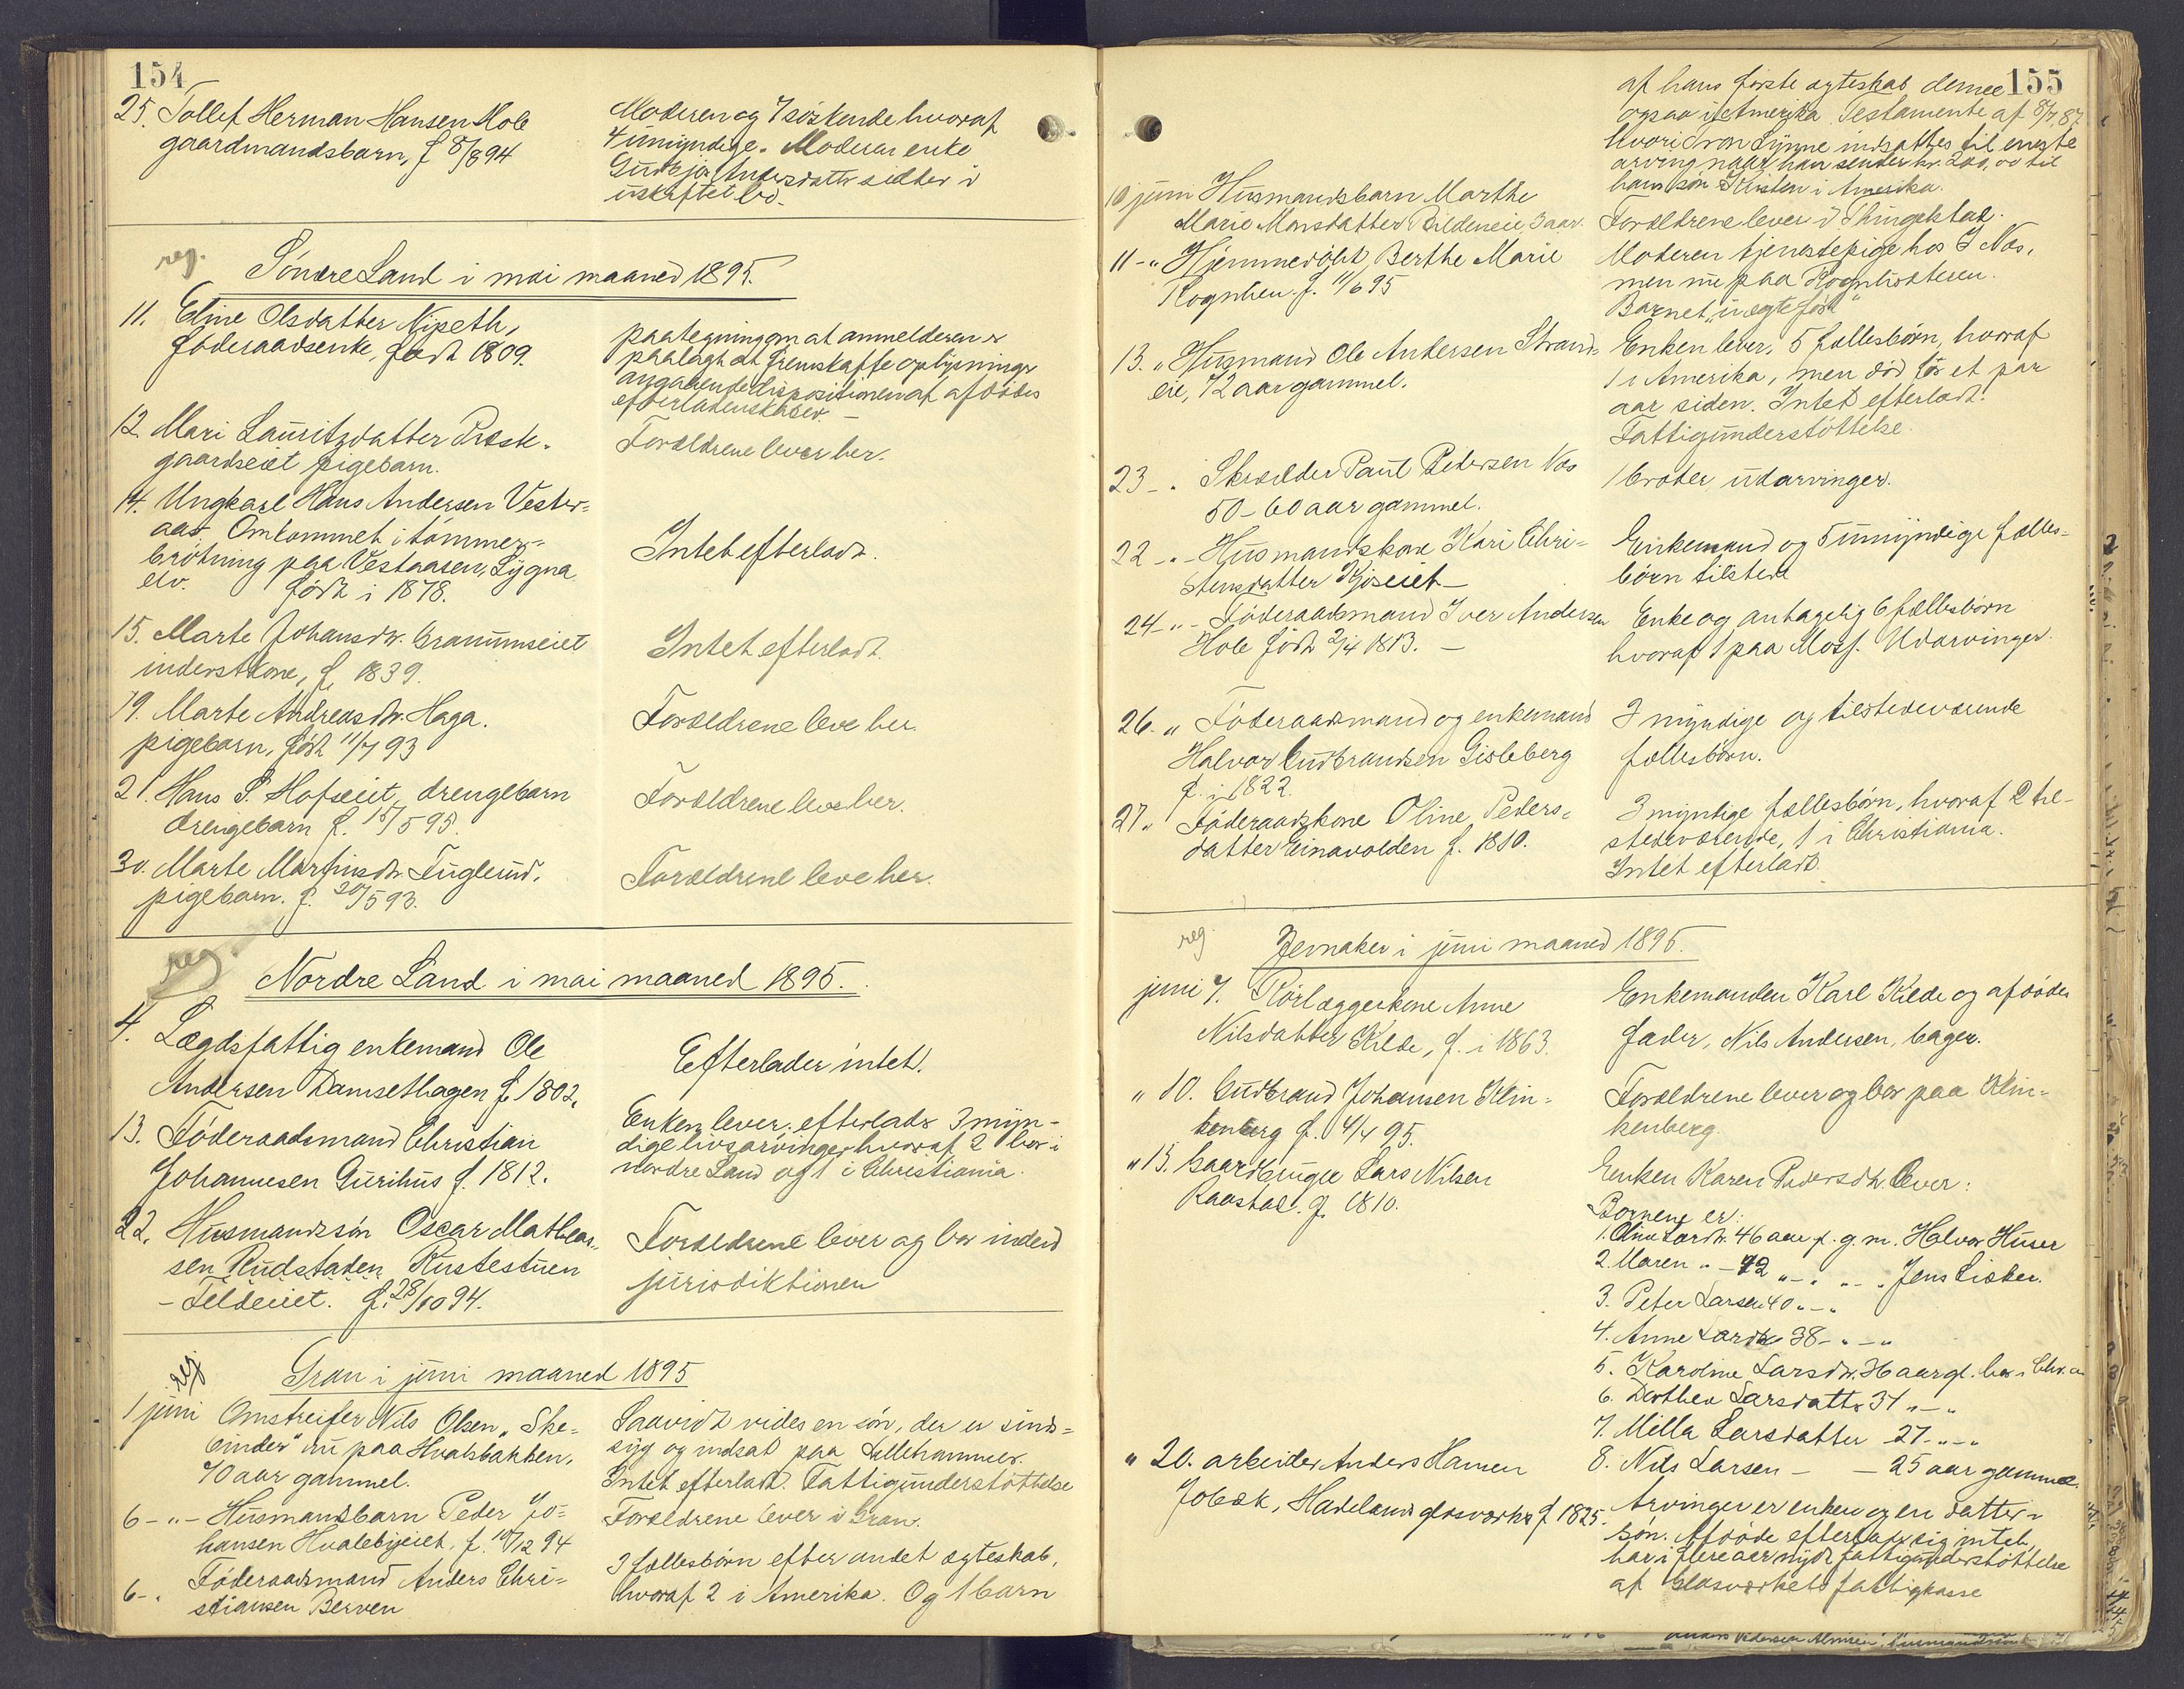 154
25. Tollef Herman Hansen Hole
gaardmandsbarn, f 8/8 94
Moderen og 7 söskende hvoraf
4 umyndige. Moderen enke
Andersdatter sidder i
uskiftet bo.
reg.
Söndre Land i mai maaned 1895.
11. Eline Olsdatter Nipeth,
föderaadsenke, född 1809.
paategning om at anmelderen er
paalagt at fremskaffe oplysninger
angaaende dispositionen af afdödes
efterladenskaber. —
12. Mari Lauritzdatter Præste-
gaardseiet pigebarn.
Forældrene lever her.
14. Ungkarl Hans Andersen Vester-
aas. Omkommet i tömmer-
brötning paa Vestaasen, Lygna
elv. född i 1878.
Intet efterladt.
15. Marte Johansdr. Granumseiet
inderstkone, f. 1839.
Intet efterladt.
19. Marte Andreasdr. Haga.
pigebarn, född 11/7 93
Forældrene leve her.
21. Hans P. Hofseiet, drengebarn
drengebarn f. 15/5 95.
Forældrene leve her.
30. Marte Martinsdr. Fuglerud.
pigebarn. f. 20/5 93.
Forældrene leve her.
reg
Nordre Land i mai maaned 1895.
4. Lægdsfattig enkemand Ole
Andersen Damsethagen f. 1802.
Efterlader intet.
13. Föderaadsmand Christian
Johannesen Gurihus f. 1812.
Enken lever, efterlader 3 myn-
dige livsarvinger hvoraf 2 bor i
nordre Land og 1 i Christiania.
22. Husmandssön Oscar Mathias-
sen Rudstaden Rustestuen
- Feldeiet. f. 28/10 94.
Forældrene lever og bor inden
jurisdiktionen
reg
Gran i juni maaned 1895
1 juni Omstreifer Nils Olsen, "Ske-
binder" nu paa Hvalsbakken,
70 aar gammel.
Saavidt vides en sön, der er sinds-
syg og indsat paa Lillehammer.
Intet efterladt. Fattigunderstöttelse
6 - " - Husmandsbarn Peder Jo-
hansen Hvalebyeiet. f. 10/12 94
Forældrene lever i Gran.
6 - " Föderaadsmand Anders Chri-
stiansen Berven
3 fællesbörn efter andet ægteskab,
hvoraf 2 i Amerika. Og 1 barn
155
af hans förste ægteskab denne
ogsaa i Amerika. Testamente af 8/7 87
hvori Lynne indsættes til eneste
arving naar han sender kr. 200,00 til
hans sön Kristen i Amerika.
10 juni Husmandsbarn Marthe
Marie Monsdatter 3 aar.
Forældrene lever i Thingelstad.
11 - " Hjemmedöbt Berthe Marie
Rognlien. f. 11/6 95
Moderen tjenestepige hos J Næs,
men nu paa
Barnet "uægte född"
13. " Husmand Ole Andersen Strand-
eie, 72 aar gammel.
Enken lever, 5 fællesbörn, hvoraf
1 i Amerika, men död for et par
aar siden. Intet efterladt.
Fattigunderstöttelse.
23 - " Skrædder Paul Pedersen Næs
50 - 60 aar gammel.
1 broder udarvinger.
22 - " - Husmandskone Kari Chri-
stensdatter Kjoseiet —
Enkemand og 5 umyndige fælles-
börn tilstede
24 - " - Föderaadsmand Iver Andersen
Hole född 2/4 1813. —
Enke og antagelig 6 fællesbörn
hvoraf 1 paa Moss. Udarvinger.
26. " Föderaadsmand og enkemand
Halvor Gudbrandsen Gisleberg
f. i 1822.
3 myndige og tilstedeværende
fællesbörn.
27. " Föderaadskone Oline Peders-
datter Einavolden f. 1810.
3 myndige fællesbörn, hvoraf 2 til-
stedeværende, 1 i Christiania.
Intet efterladt.
reg.
Jevnaker i juni maaned 1895.
juni 7. Rörlæggerkone Anne
Nilsdatter Kilde, f. i 1863.
Enkemanden Karl Kilde og afdödes
fader, Nils Andersen, bager.
" 10. Gudbrand Johansen Klin-
kenberg f. 4/4 95.
Forældrene lever og bor paa Klin-
kenberg.
" 15. Gaardbruger Lars Nilsen
Raastad. f. 1810.
Enken Karen Pedersdr. lever:
Börnene er:
1. Oline Larsdr. 46 aar g. m. Halvor Huser
2. Maren " - 42 " - " - " Jens Lisker.
3. Peter Larsen 40 " - "
4. Anne Larsdr 38 - " - "
5. Karoline Larsdr. 36 aar gl. bor i Chr.a
6. Dorthea Larsdatter 31 " - "
7. Milla Larsdatter 27 - " - "
8. Nils Larsen - - 25 aar gammel.
" 20. arbeider Anders Hansen
Jobæk, Hadelands glasværk f 1825.
Arvinger er enken og en datter-
sön. Afdöde efterlader sig intet,
har i flere aar nydt fattigunderstöttelse
af Glasværkets fattigkasse